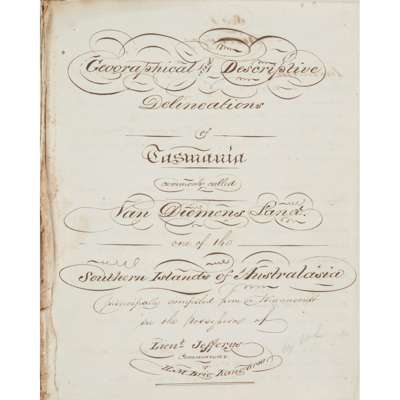 Geographical & Descriptive
Delineations
of
Tasmania
commonly called
Van Diemens Land.
one of the
Southern Islands of Australasia
principally compiled from a Manuscript
in the possession of
Lieut. Jefferys
Commander
H.M. Brig Kangaroo